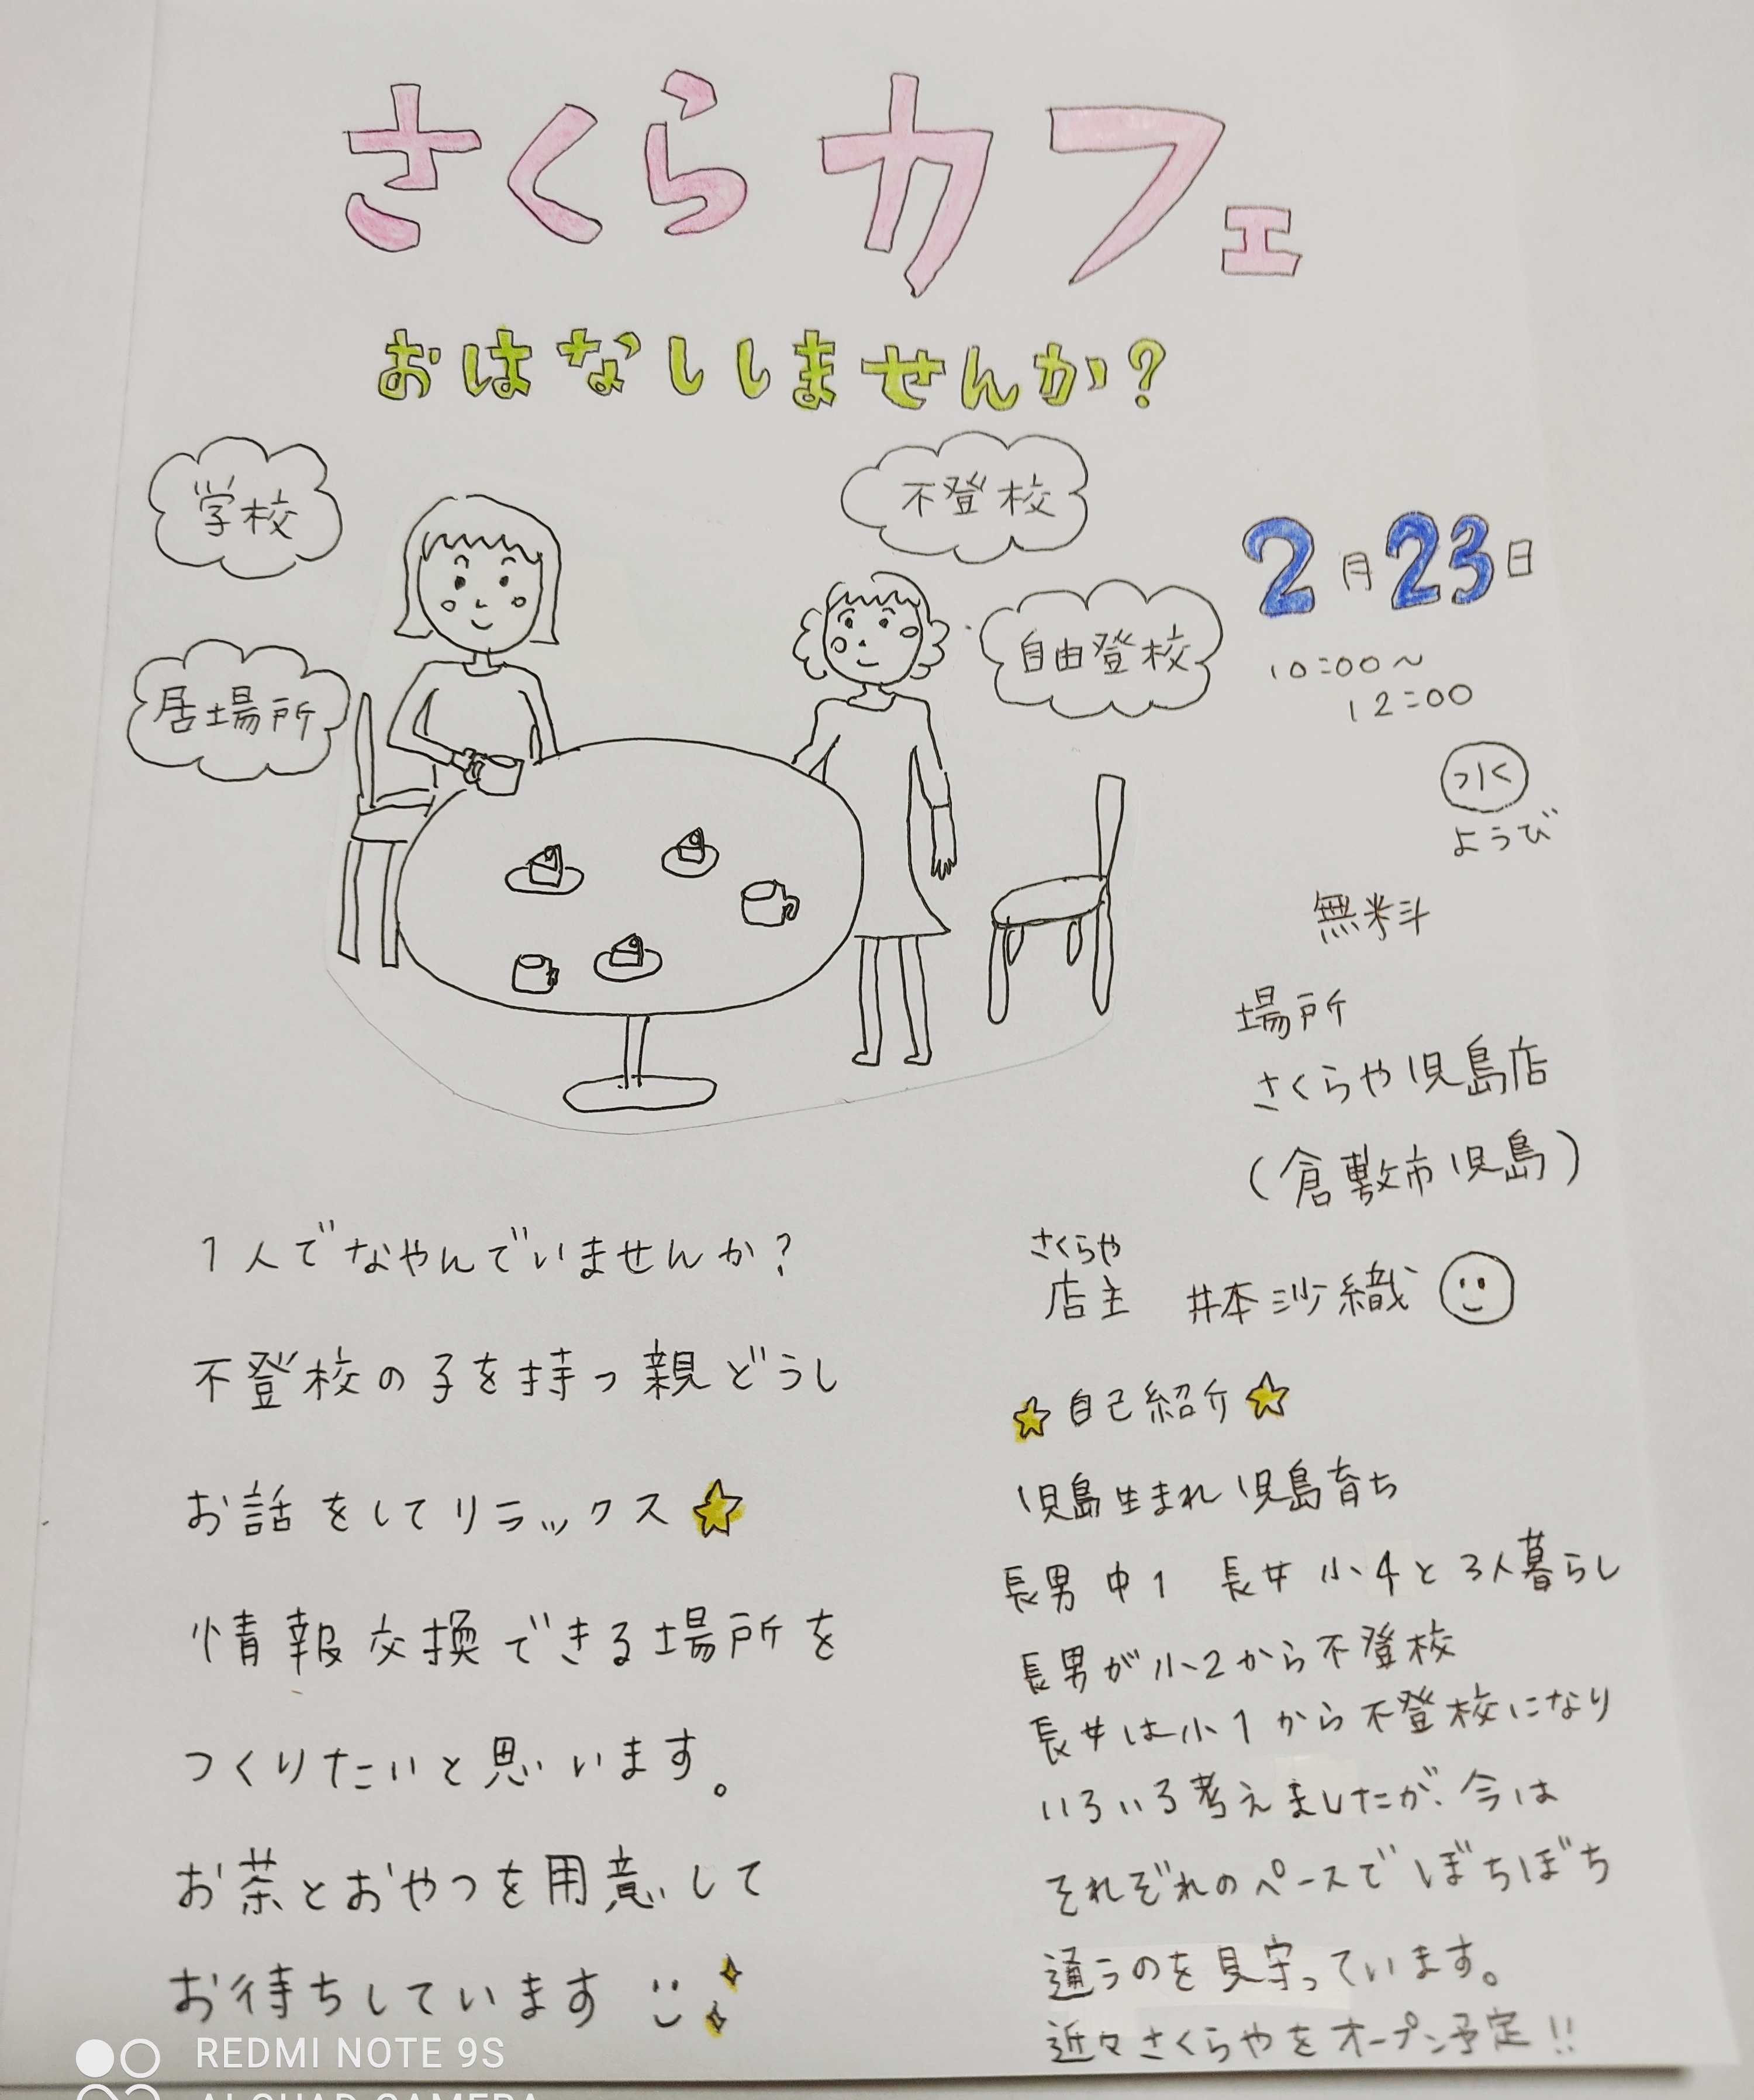 さくらカフェ
おはなししませんか?
学校
不登校
居場所
自由登校
2月23日
10:00〜
12:00
水
ようび
無料
場所
さくらや児島店
(倉敷市児島)
1人でなやんでいませんか?
不登校の子を持つ親どうし
お話をしてリラックス☆
情報交換できる場所を
つくりたいと思います。
お茶とおやつを用意して
お待ちしています
さくらや
店主 井本沙織
☆自己紹介☆
児島生まれ児島育ち
長男 中1 長女 小4と3人暮らし
長男が小2から不登校
長女は小1から不登校になり
いろいろ考えましたが、今は
それぞれのペースでぼちぼち
通うのを見守っています。
近々さくらやをオープン予定!!
REDMI NOTE 9S
AI QUAD CAMERA